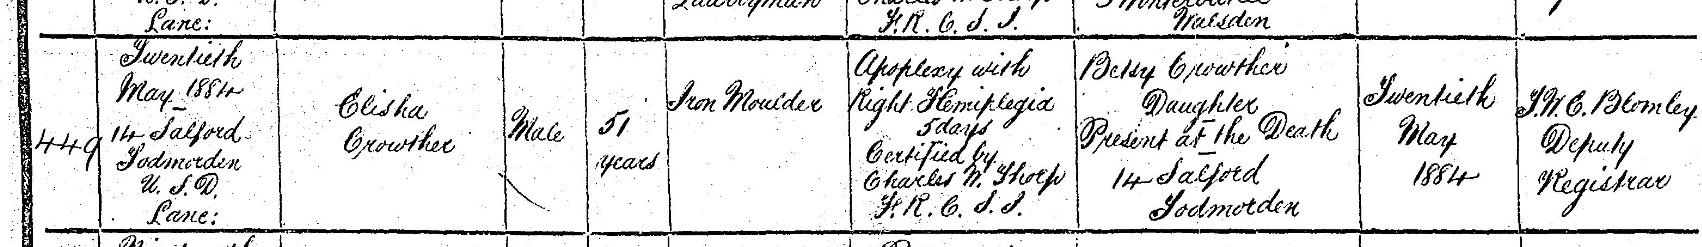 Lane:
F. R. C. S. I.
Walsden
449
Twentieth
May 1884
14 Salford
Todmorden
U. S. D.
Lane:
Elisha
Crowther
Male
51
years
Iron Moulder
Apoplexy with
Right Hemiplegia
5 days
Certified by
Charles W. Thorp
F. R. C. S. I.
Betsy Crowther
Daughter
Present at the Death
14 Salford
Todmorden
Twentieth
May
1884
T. W. E. Blomley
Deputy
Registrar